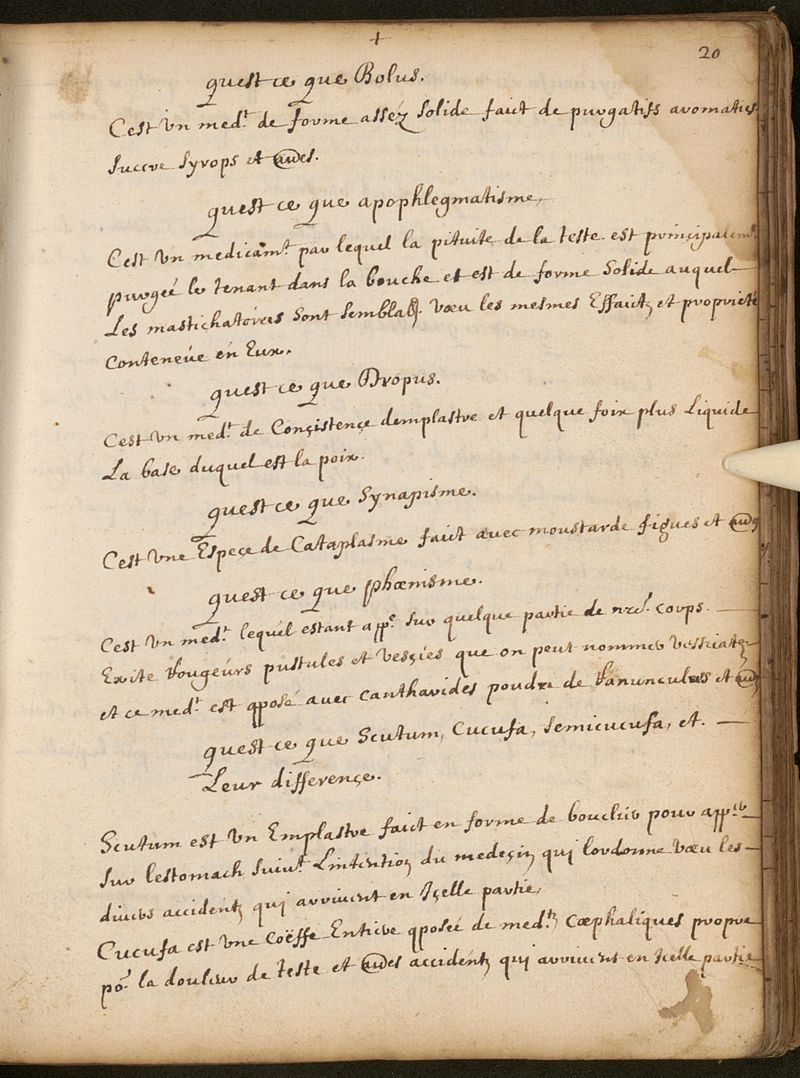 +
20
quest ce que Bolus.
Cest Vn med.t de forme asséz solide faict de purgatifs aromatics
succre syrops et au͠es.
quest ce que apophlegmatisme,
Cest Vn medicam.t par lequel la pituite de la teste est principalem.t
purgeé le tenant dans la bouche et est de forme solide auquel
Les mastichatoires sont semblab. Veu les mesmes Effaictz et proprieté
Conteneüe en Eux.
quest ce que Dropus.
Cest Vn med.t de Consistence demplastre et quelque foix plus Liquide
La base duquel est la poix.
quest ce que Synapisme.
Cest Vne Espece de Cataplasme faict avec moustarde figues et
quest ce que phœnisme.
Cest Vn med.t lequel estant app.é sur quelque partie de nr͠e corps.
Exite Rougeurs pustules et vessies que on peut nommer vessicatz
et ce med.t est qposé avec cantharides poudre de Ranuncules et
quest ce que Scutum, Cucufa, Semicucufa, et.
Leur difference.
Scutum est Vn Emplastre faict en forme de bouclier pour app.er
sur lestomach suiu.t Lintention du medecin qui lordonne Veu les
diuers accidentz qui arriuent en Jcelle partie,
Cucufa est Vne Coëffe Entiere qposeé de med.tz Cœphaliques propre
po.r la douleur de teste et au͠es accidentz qui arriuent en Jcelle partie